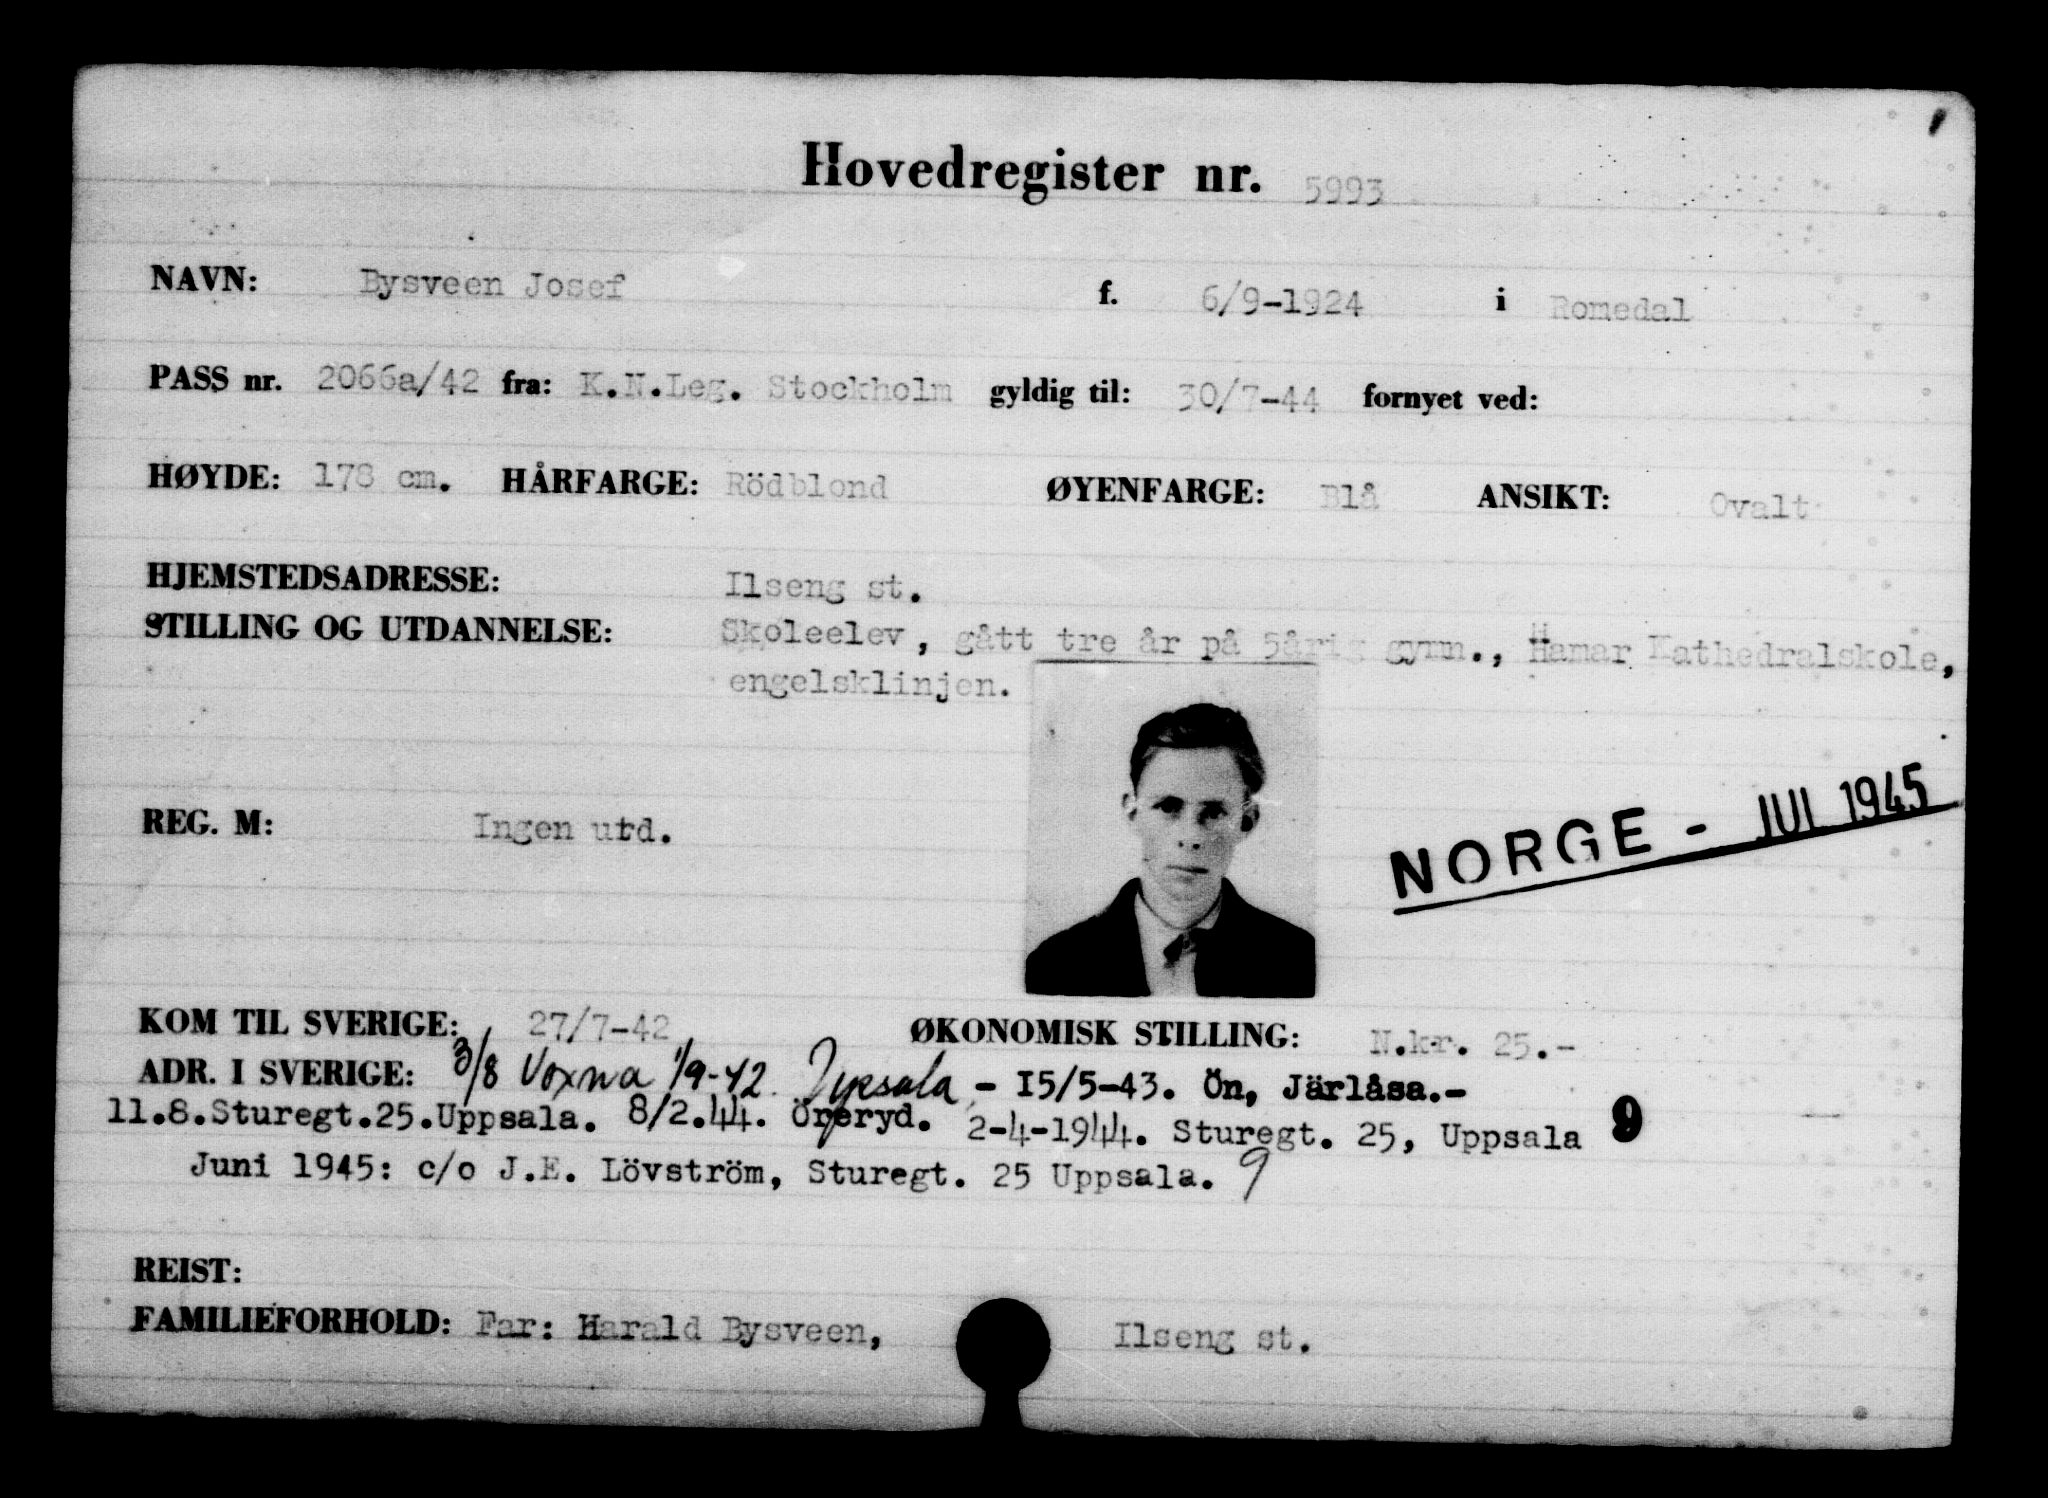 Hovedregister nr. 5993
NAVN: Bysveen Josef f. 6/9-1924 i Romedal
PASS nr. 2066a/42 fra: K.N.Leg. Stockholm gyldig til: 30/7-44 fornyet ved:
HØYDE: 178 cm. HÅRFARGE: Rödblond ØYENFARGE: Blå ANSIKT: Ovalt
HJEMSTEDSADRESSE: Ilseng st.
STILLING OG UTDANNELSE: Skoleelev, gått tre år på 5årig gymn., Hamar Kathedralskole,
engelsklinjen.
REG. M: Ingen utd.
NORGE - JUL 1945
KOM TIL SVERIGE: 27/7-42 ØKONOMISK STILLING: N.kr. 25.-
ADR. I SVERIGE: 3/8 Voxna 1/9-42. Upsala - 15/5-43. Ön, Järlåsa.-
11.8.Sturegt.25.Uppsala. 8/2.44. Öreryd. 2-4-1944. Sturegt. 25, Uppsala 9
Juni 1945: c/o J.E. Lövström, Sturegt. 25 Uppsala. 9
REIST:
FAMILIEFORHOLD: Far: Harald Bysveen, Ilseng st.